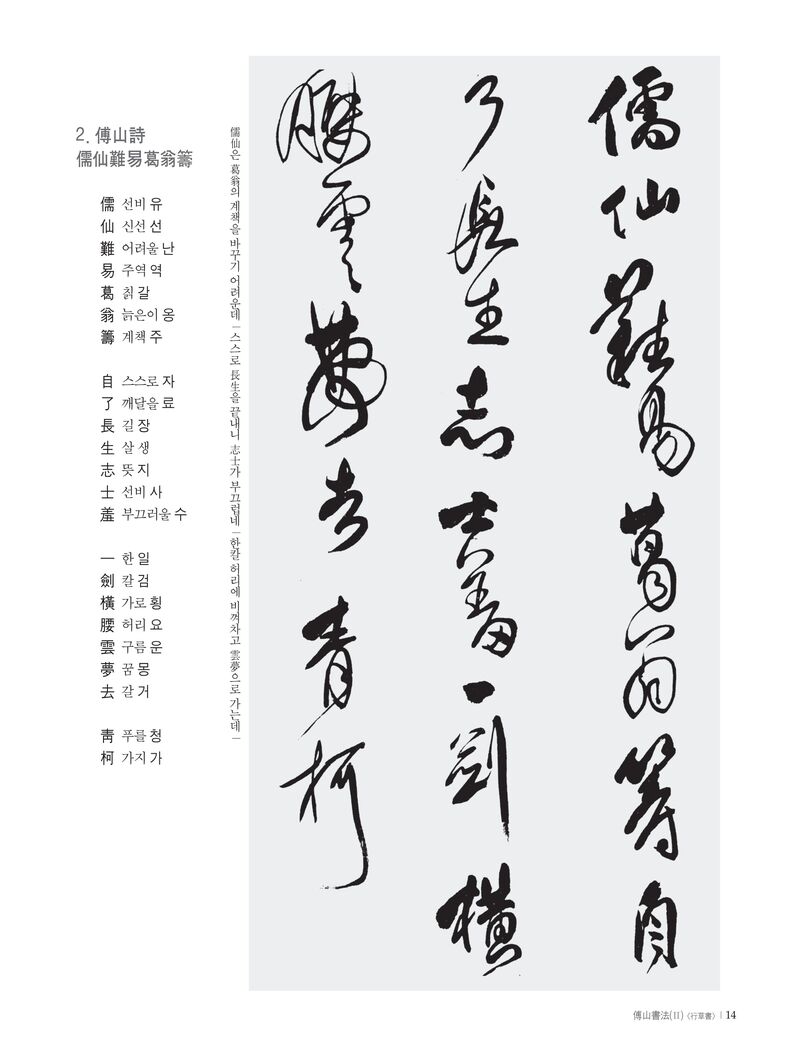 2. 傅山詩
儒仙難易葛翁籌
儒 선비 유
仙 신선 선
難 어려울 난
易 주역 역
葛 칡 갈
翁 늙은이 옹
籌 계책 주
自 스스로 자
了 깨달을 료
長 길 장
生 살 생
志 뜻 지
士 선비 사
羞 부끄러울 수
一 한 일
劍 칼 검
橫 가로 횡
腰 허리 요
雲 구름 운
夢 꿈 몽
去 갈 거
靑 푸를 청
柯 가지 가
儒仙은 葛翁의 계책을 바꾸기 어려운데 | 스스로 長生을 끝내니 志士가 부끄럽네 | 한칼 허리에 비껴차고 雲夢으로 가는데 |
儒仙難易葛翁籌自
了長生志士羞一劍橫
腰雲夢去靑柯
傅山書法(II) 〈行草書〉 | 14